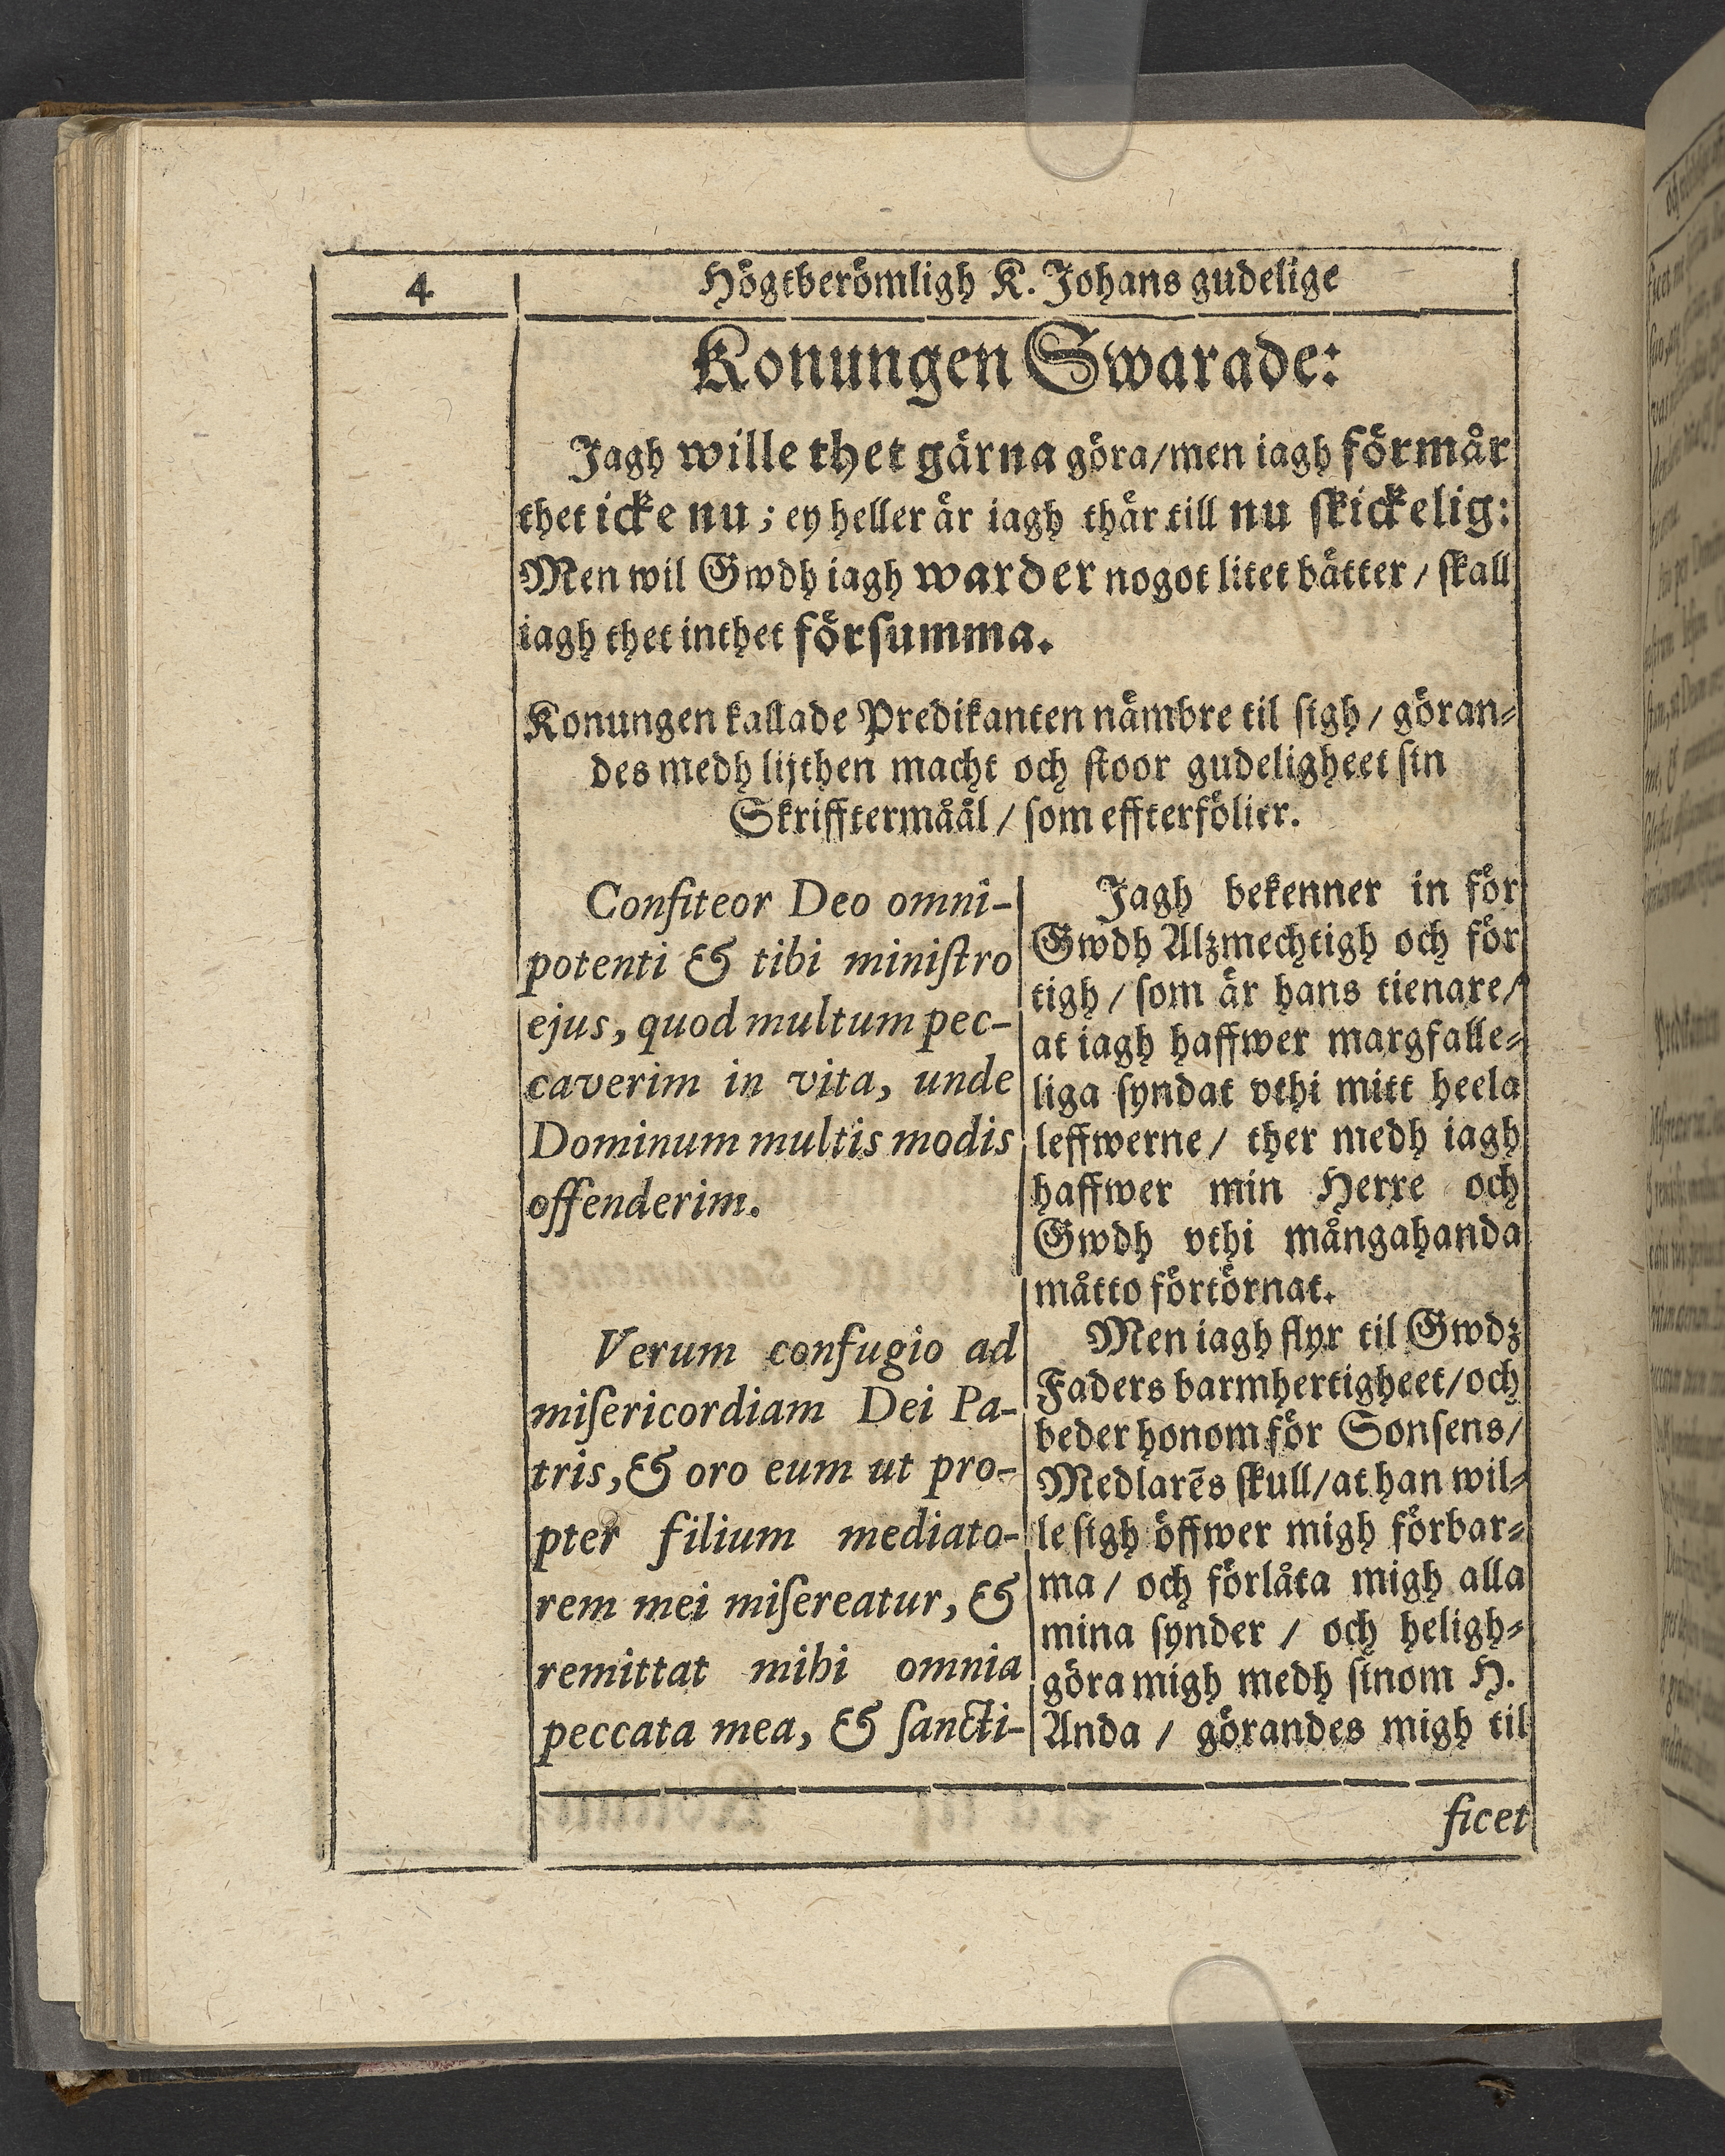 4
Högtberömligh K. Johans gudelige
Konungen Swarade:
Jagh wille thet gärna göra/men iagh förmår
thet icke nu; ey heller är iagh thär till nu ſkickelig:
Men wil Gwdh iagh warder nogot litet bätter / ſkall
iagh thet inthet förſumma.
Konungen kallade Predikanten nämbre til ſigh / göran⸗
des medh lijthen macht och ſtoor gudeligheet ſin
Skrifftermåål / ſom effterfölier.
Confiteor Deo omni-
potenti & tibi miniſtro
ejus, quod multum pec-
caverim in vita, unde
Dominum multis modis
offenderim.
Verum confugio ad
miſericordiam Dei Pa-
tris, & oro eum ut pro-
pter filium mediato-
rem mei miſereatur, &
remittat mihi omnia
peccata mea, & ſancti-
Jagh bekenner in för
Gwdh Alzmechtigh och för
tigh / ſom är hans tienare/
at iagh haffwer margfalle⸗
liga ſyndat vthi mitt heela
leffwerne / ther medh iagh
haffwer min Herre och
Gwdh vthi mångahanda
måtto förtörnat.
Men iagh flyr til Gwdz
Faders barmhertigheet/och
beder honom för Sonſens/
Medlarēs ſkull/at han wil⸗
le ſigh öffwer migh förbar⸗
ma / och förlåta migh alla
mina ſynder / och heligh⸗
göra migh medh ſinom H.
Anda / görandes migh til
ficet